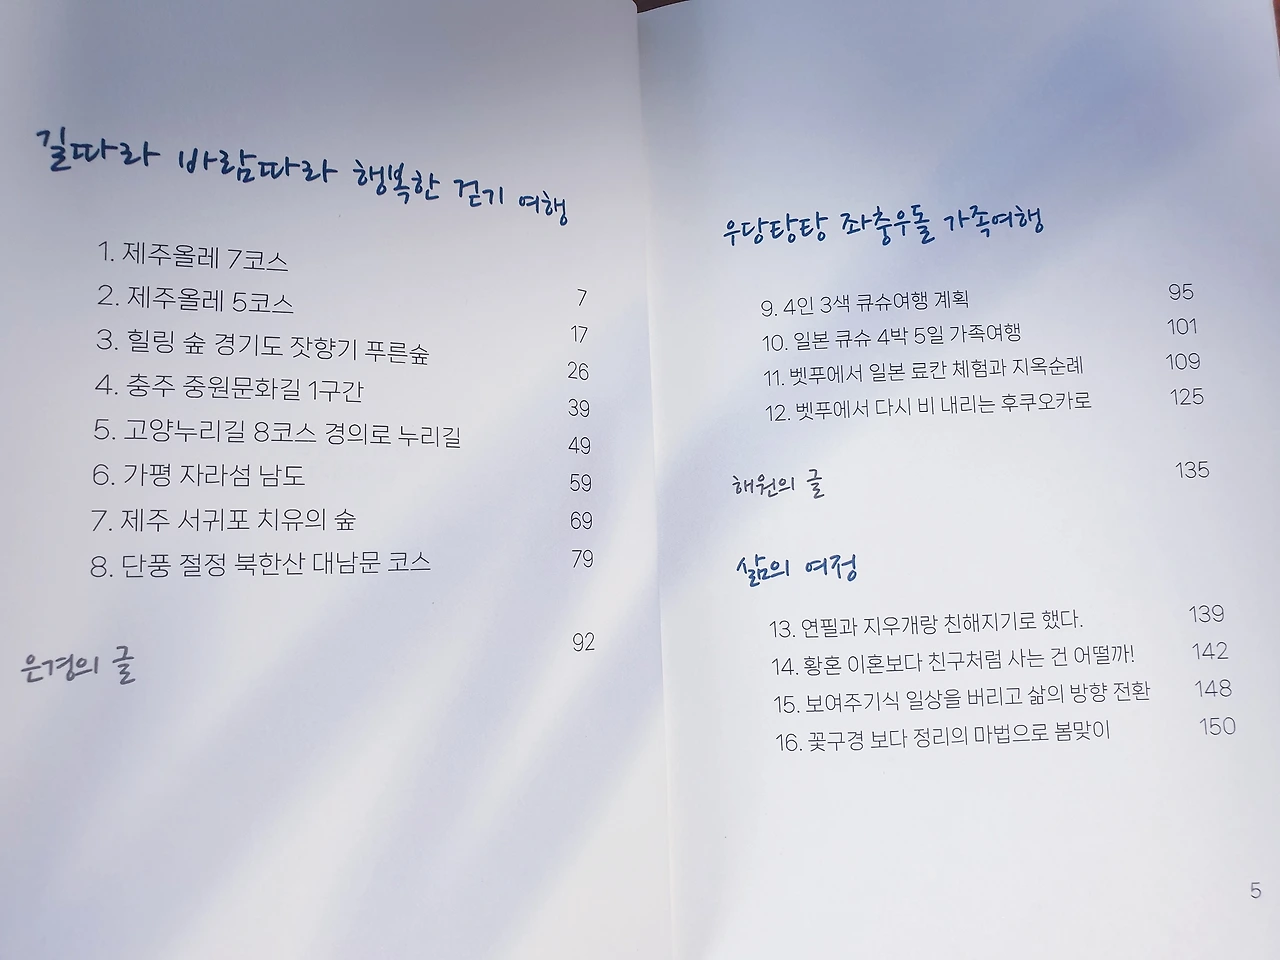 길따라 바람따라 행복한 걷기 여행
1. 제주올레 7코스 7
2. 제주올레 5코스 17
3. 힐링 숲 경기도 잣향기 푸른숲 26
4. 충주 중원문화길 1구간 39
5. 고양누리길 8코스 경의로 누리길 49
6. 가평 자라섬 남도 59
7. 제주 서귀포 치유의 숲 69
8. 단풍 절정 북한산 대남문 코스 79
은경의 글 92
우당탕탕 좌충우돌 가족여행
9. 4인 3색 큐슈여행 계획 95
10. 일본 큐슈 4박 5일 가족여행 101
11. 벳푸에서 일본 료칸 체험과 지옥순례 109
12. 벳푸에서 다시 비 내리는 후쿠오카로 125
해원의 글 135
삶의 여정
13. 연필과 지우개랑 친해지기로 했다. 139
14. 황혼 이혼보다 친구처럼 사는 건 어떨까! 142
15. 보여주기식 일상을 버리고 삶의 방향 전환 148
16. 꽃구경 보다 정리의 마법으로 봄맞이 150
5